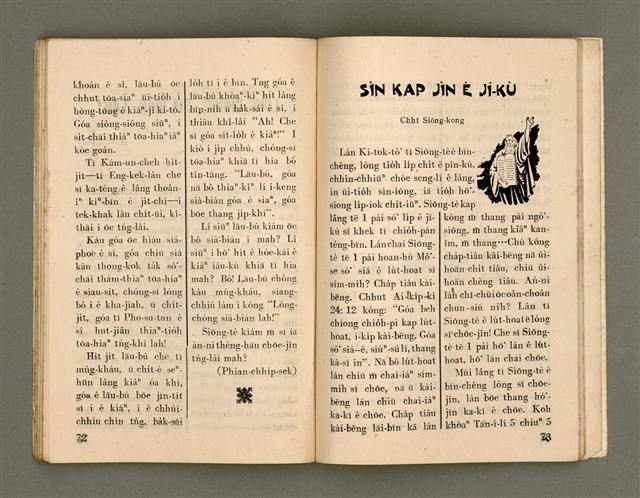 khoán ê sî, lāu-bú ōe
chhut tōa-siaⁿ ùi-tio̍h i
hòng-tōng ê kiáⁿ-jî kî-tó.
Góa siông-siông siūⁿ, i
si̍t-chāi thiàⁿ tōa-hiaⁿ iáⁿ
kòe goán.
Tī Kám-un-cheh hit-
ji̍t—tī Eng-kek-lân che
sī ka-têng ê lâng thoân-
îⁿ ki̍ⁿ-bīn ê ji̍t-chí—i
tek-khak lâu chi̍t-ūi, kî-
thāi i ōe tńg-lâi.
Kàu góa ōe hiáu siá-
phoe ê sî, góa chiū siá
kàu thong-kok ta̍k só͘-
chāi thàm-thiaⁿ tōa-hiaⁿ
ê siau-sit, chóng-sī lóng
bô i ê kha-jiah, ū chi̍t-
ji̍t, góa tī Pho-su-tun ê
sî hut-jiân thiaⁿ-tio̍h
tōa-hiaⁿ tńg-khì lah!
Hit ji̍t lāu-bú che tī
mn̂g-kháu, ū chi̍t-ê seⁿ-
hūn lâng kiâⁿ óa khì,
góa ê lāu-bú bōe jīn-tit
sī i ê kiáⁿ, i ê chhùi-
chhiu chin tn̂g, ba̍k-sái
lo̍h tī i ê bīn. Tng góa ê
lāu-bú khòaⁿ-kìⁿ hit lâng
bi̍p-nih ū ba̍k-sái ê sî, i
thiàu khí-lâi "Ah! Che
sī góa sit-lo̍h ê kiáⁿ!" I
kiò i ji̍p chhù, chóng-sī
tōa-hiaⁿ khiā tī hia bô
tín-tāng. "Lāu-bú, góa
nā bô thiaⁿ-kìⁿ lí í-keng
sià-bián góa ê siaⁿ, góa
bōe thang ji̍p-khì".
Lí siūⁿ lāu-bú kiám ōe
bô sià-bián i mah? Lí
siūⁿ i hō͘ hit ê hóe-kái ê
kiáⁿ iáu-kú khiā tī hia
mah? Bô! Lāu-bú chông
kàu mn̂g-kháu, siang-
chhiú lám i kóng "Lóng-
chóng sià-bián lah!"
Siōng-tè kiám m̄ sī iā
án-ni thèng-hāu chōe-jîn
tńg-lâi mah?
(Phian-chhip-sek)
72
SÎN KAP JÎN Ê JĪ-KÙ
Chhî Siông-kong
Lán Ki-tok-tô͘ tī Siōng-tè ê bīn-
chêng, lóng tio̍h li̍p chi̍t ê pîn-kù,
chhin-chhiūⁿ chòe seng-lí ê lâng,
in ūi-tio̍h sìn-iōng, iā tio̍h hō͘-
siong li̍p-iok chi̍t-iūⁿ. Siōng-tè kap
lâng tē 1 pái só͘ li̍p ê jī-
kù sī khek tī chio̍h-pán
téng-bīn. Lán chai Siōng-
tè tē 1 pái hoan-hù Mô͘-
se só͘ siá ê lu̍t-hoat sī
sím-mih? Cha̍p tiâu kài-
bēng. Chhut Ai-ki̍p-kì
24: 12 kóng: "Góa beh
chiong chio̍h-pi kap lu̍t-
hoat, í-ki̍p kài-bēng. Góa
só͘ siá-ê, siúⁿ-sù lí, thang
kà-sī in". Nā bô lu̍t-hoat
lán chiū m̄ chai-iáⁿ sím-
mih sī chōe, nā ū kài-
bēng lán chiū chai-iáⁿ
ka-kī ê chōe. Cha̍p tiâu
kài-bēng lāi-bīn kā lán
kóng m̄ thang pài ngó͘-
siōng, m̄ thang kiâⁿ kan-
îm, m̄ thang⋯ Chú kóng
cha̍p-tiâu kài-bēng nā ûi-
hoān chi̍t tiâu, chiū ûi-
hoān chêng tiâu. Án-ni
lán chī-chūi ōe oân-choân
chun-siú nih? Lán tī
Siōng-tè ê lu̍t-hoat ē lóng
sī chōe-jîn! Che sī Siōng-
tè tē 1 hō͘ lán ê lu̍t-
hoat, hō͘ lán chai chōe.
Múi lâng tī Siōng-tè ê
bīn-chêng lóng sī chōe-
jîn, lán thang kā hō͘-
jīn, lán thang khiā tī
ka-kī ê chōe. Koh
khòaⁿ Tān-í-lí 5 chiuⁿ 5
73